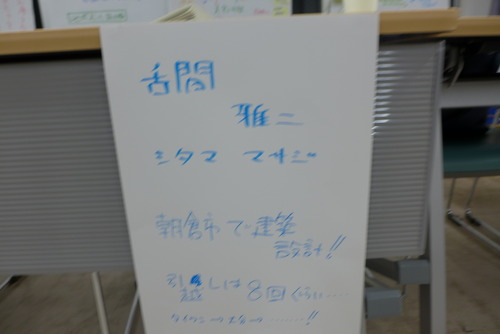 舌間
雅二
シタマ マサジ
朝倉市で建築
設計!!
引越しは8回ぐらい……